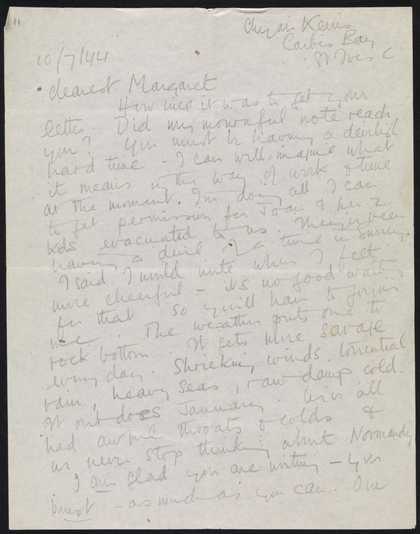 Chy-an-Kerris
Carbis Bay
St Ives C
10/7/44
dearest Margaret
How nice it was to get your
letter. Did my mournful note reach
you? You must be having a devilish
hard time - I can well imagine what
it means in the way of work & time
at the moment. I'm doing all I can
to get permission for Joan & her 2
kids evacuated to us. They've been
having a devil of a time in Surrey.
I said I would write when I felt
more cheerful - it's no good waiting
for that so you'll have to forgive
me. The weather puts one to
rock bottom. It gets more savage
every day. Shrieking winds. torrential
rain, heavy seas, raw damp cold.
It out does January. We've all
had awful throats & colds &
we never stop thinking about Normandy
I am glad you are writing - you
must - as much as you can. One